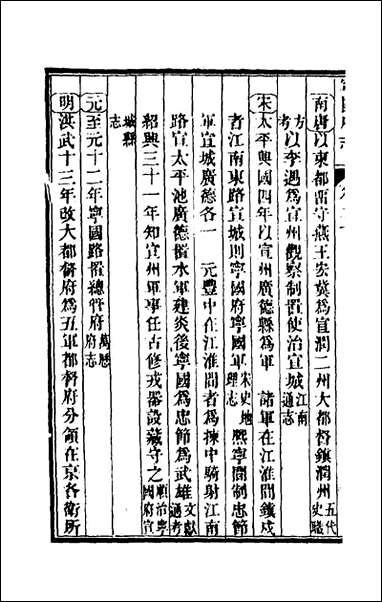 南唐以東都畱守燕王宏冀爲宣潤二州大都督鎮潤州五代史職
方考以李遇爲宣州觀察制置使治宣城江南通志
宋太平興國四年以宣州廣德縣爲軍 諸軍在江淮間鎮戍
者江南東路宣城則寧國府寧國軍宋史地理志 熙寧間制忠節
軍宣城廣德各一 元豐中在江淮間者爲揀中騎射江南
路宣太平池廣德揩水軍建炎後寧國爲忠節爲武雄文獻通考
紹興三十一年知宣州軍事任古修戎器設藏守之順治寧國府宣
城縣志
元至元十二年寧國路揩總管府萬曆府志
明洪武十三年改大都督府爲五軍都督府分領在京各衞所